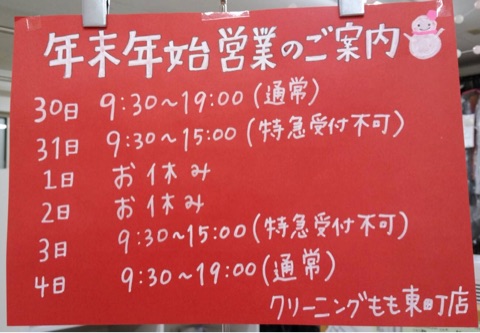 年末年始営業のご案内
30日 9:30~19:00(通常)
31日 9:30~15:00(特急受付不可)
1日 お休み
2日 お休み
3日 9:30~15:00(特急受付不可)
4日 9:30~19:00(通常)
クリーニングもも東町店